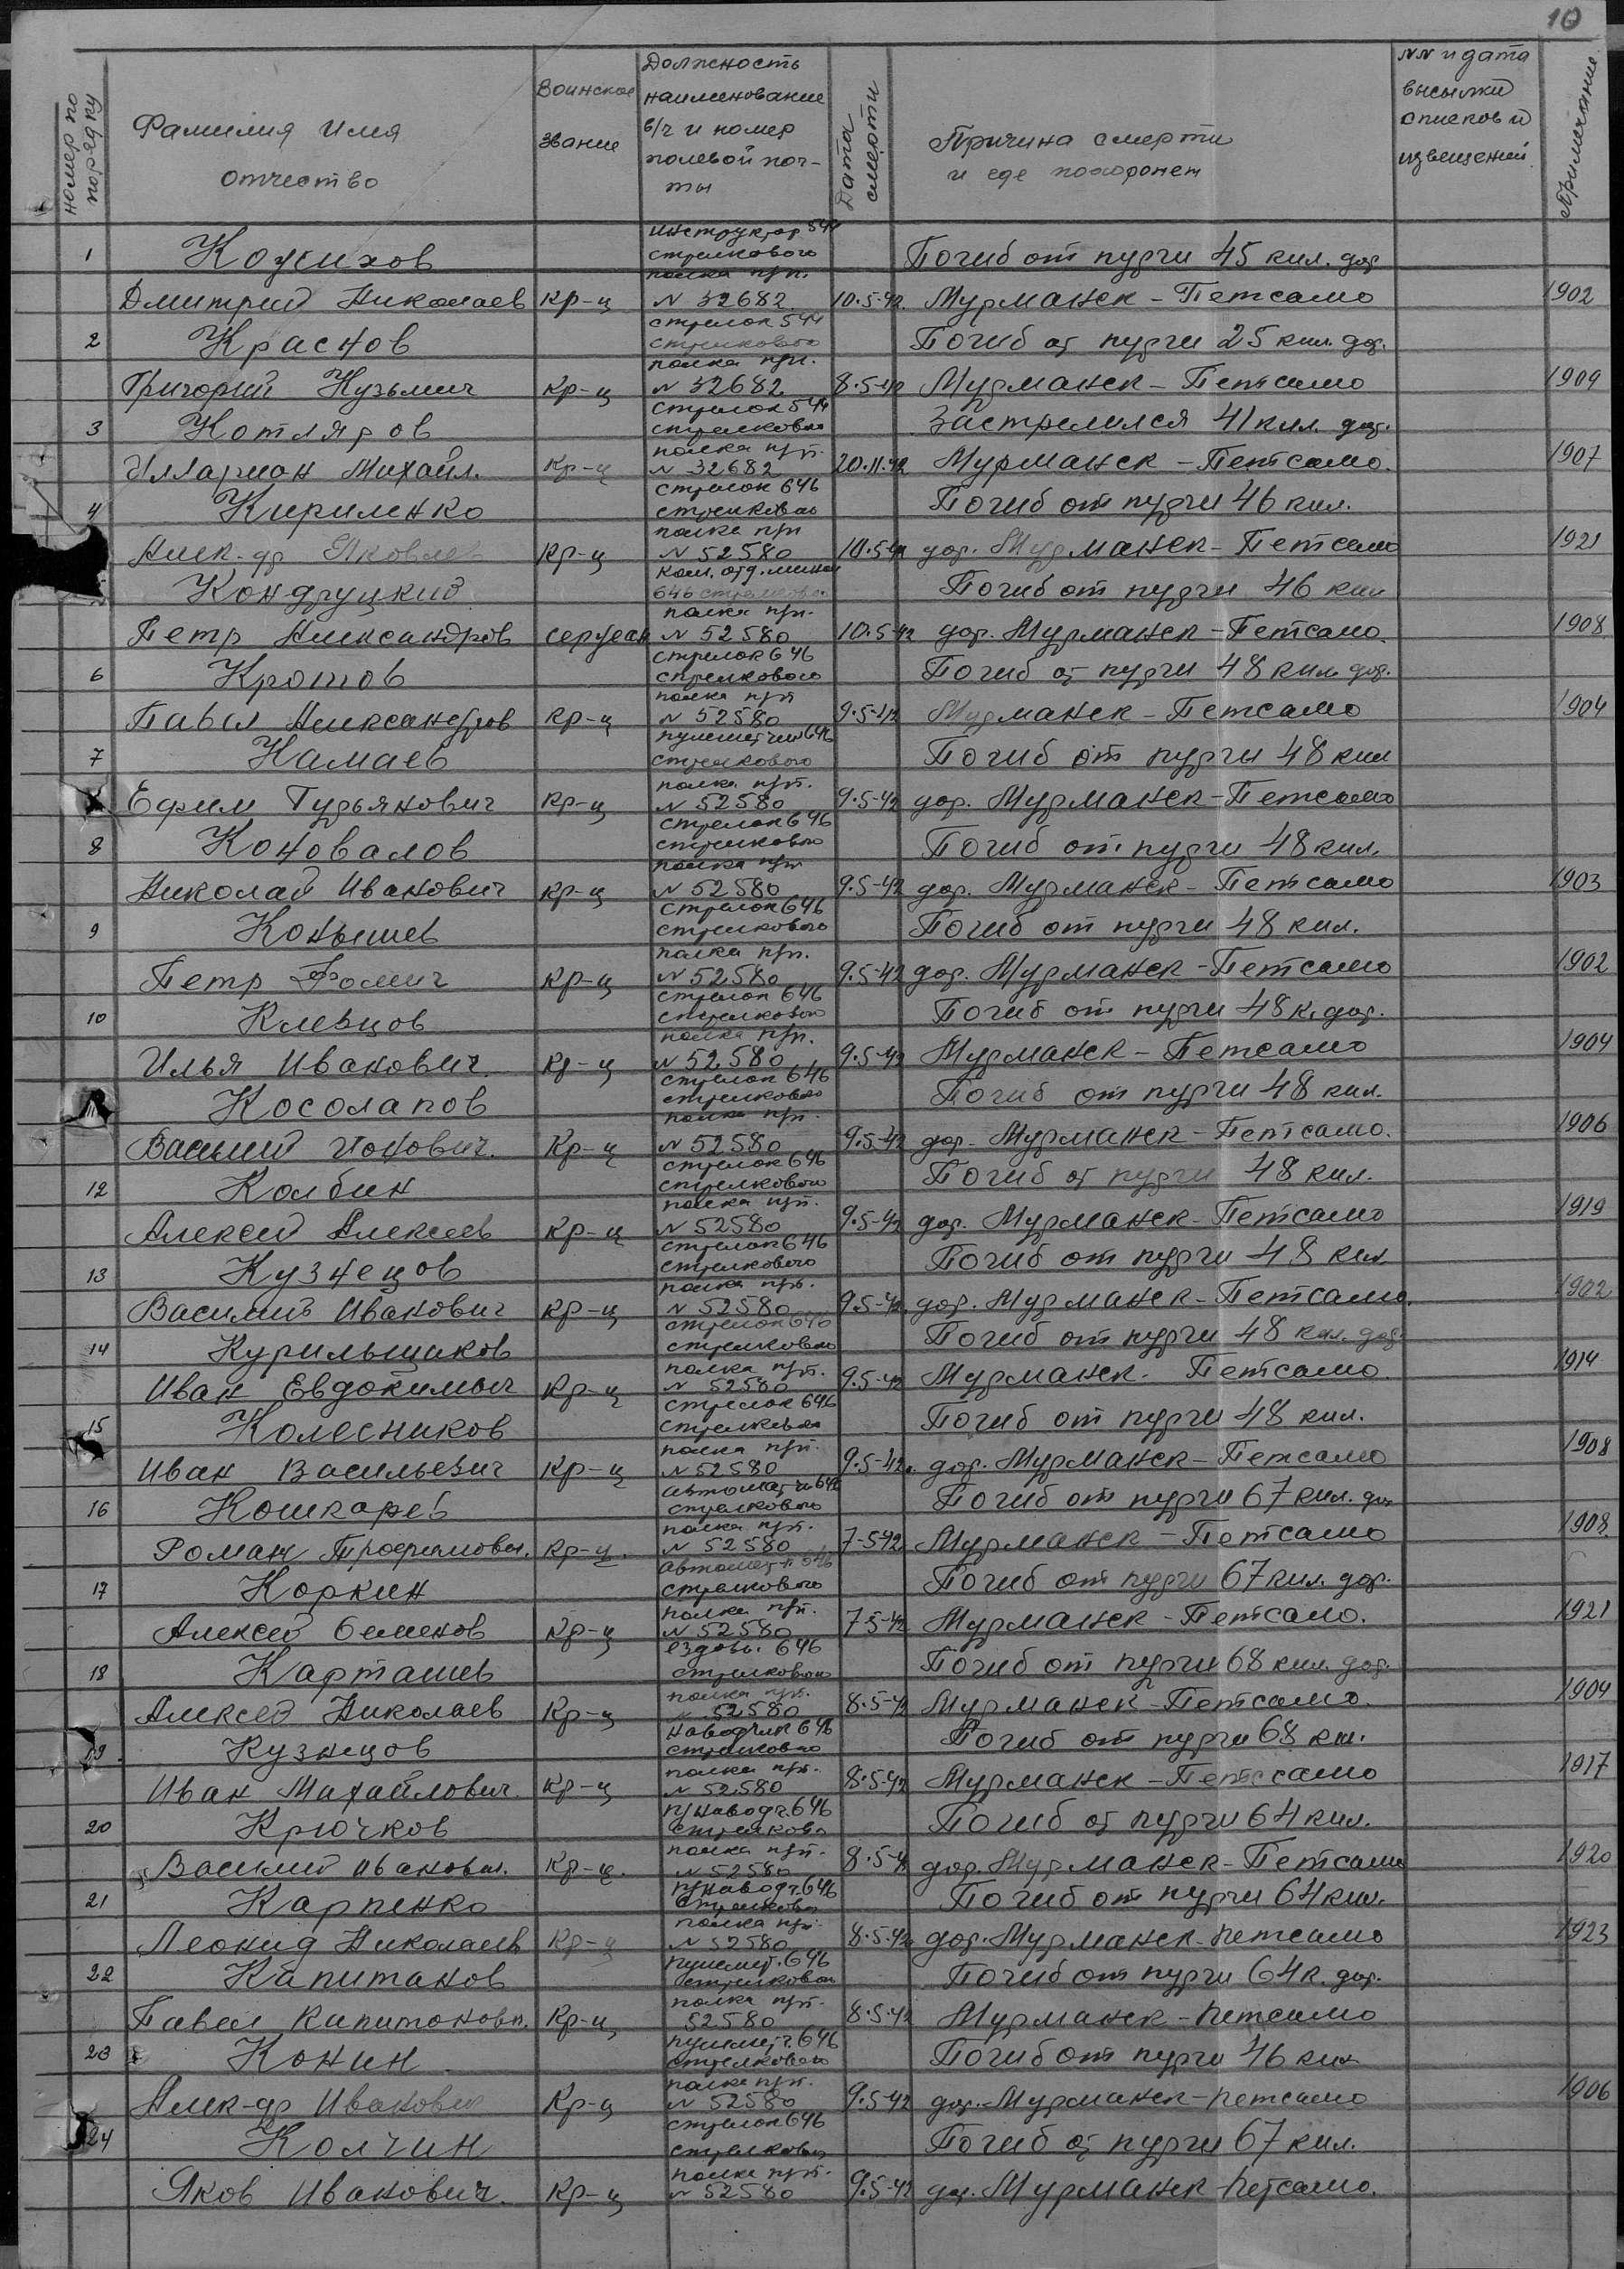 10
номер по порядку
Фамилия имя отчество
Воинское звание
Должность наименование в/ч и номер полевой поч-ты
Дата смерти
Причина смерти и где похоронен
NN и дата высылки списков и извещений
Примечание
инструктор 544
1 Кожихов стрелкового Погиб от пурги 45 кил. дор.
полка п/п.
Дмитрий Николаев кр-ц N 32682 10.5-42. Мурманск-Петсамо 1902
стрелок 544
2 Краснов стрелкового Погиб от пурги 25 кил. дор.
полка п/п.
Григорий Кузьмич кр-ц N 32682 8.5-42 Мурманск-Петсамо 1909
стрелок 544
3 Котляров стрелковго Застрелился 41 кил. дор.
полка п/п.
Илларион Михайл. кр-ц N 32682 20.11.42 Мурманск-Петсамо. 1907
стрелок 646
4 Кириленко стрелкового Погиб от пурги 46 кил.
полка п/п
Алек-др Яковлев кр-ц N 52580 10.5-42 дор. Мурманск-Петсамо 1921
ком. отд. мином
Кондруцкий 646 стрелковог Погиб от пурги 46 кил
полка п/п.
Петр Александров сержан N 52580 10.5-42 дор. Мурманск-Петсамо. 1908
стрелок 646
6 Кротов стрелкового Погиб от пурги 48 кил. дор.
полка п/п
Павел Александров кр-ц N 52580 9.5-42 Мурманск-Петсамо 1904
пулеметчик 646
7 Камаев стрелкового Погиб от пурги 48 кил
полка п/п.
Ефим Гурьянович кр-ц N 52580 9.5-42 дор. Мурманск-Петсамо
стрелок 646
8 Коновалов стрелкового Погиб от пурги 48 кил.
полка п/п
Николай Иванович кр-ц N 52580 9.5-42 дор. Мурманск-Петсамо 1903
стрелок 646
9 Конышев стрелкового Погиб от пурги 48 кил.
полка п/п.
Петр Фомич кр-ц N 52580 9.5-42 дор. Мурманск-Петсамо 1902
стрелок 646
10 Клевцов стрелкового Погиб от пурги 48 к. дор.
полка п/п.
Илья Иванович. кр-ц N 52580 9.5-42 Мурманск-Петсамо 1904
стрелок 646
Косолапов стрелкового Погиб от пурги 48 кил.
полка п/п.
Василий Ионович. кр-ц N 52580 9.5-42 дор. Мурманск-Петсамо. 1906
стрелок 646
12 Колбин стрелкового Погиб от пурги 48 кил.
полка п/п.
Алексей Алексеев кр-ц N 52580 9.5-42 дор. Мурманск-Петсамо 1919
стрелок 646
13 Кузнецов стрелкового Погиб от пурги 48 кил.
полка п/п.
Василий Иванович кр-ц N 52580 9.5-42. дор. Мурманск-Петсамо. 1902
стрелок 646
14 Курильщиков стрелкового Погиб от пурги 48 кил. дор.
полка п/п.
Иван Евдокимыч кр-ц N 52580 9.5-42 Мурманск. Петсамо. 1914
стрелок 646
15 Колесников стрелкового Погиб от пурги 48 кил.
полка п/п.
Иван Васильевич кр-ц N 52580 9.5-42. дор. Мурманск-Петсамо 1908
автомат-ч 646
16 Кошкарев стрелкового Погиб от пурги 67 кил. дор
полка п/п.
Роман Трофимович. кр-ц. N 52580 7-5-42 Мурманск-Петсамо 1908
автомат-ч 646
17 Коркин стрелкового Погиб от пурги 67 кил. дор.
полка п/п.
Алексей Семенов кр-ц N 52580 7-5-42 Мурманск-Петсамо. 1921
ездовы. 646
18 Карташев стрелкового Погиб от пурги 68 кил. дор.
полка п/п.
Алексей Николаев кр-ц N 52580 8.5-42 Мурманск-Петсамо. 1904
наводчик 646
19 Кузнецов стрелковго Погиб от пурги 68 кил.
полка п/п.
Иван Михайлович. кр-ц N 52580 8.5-42 Мурманск-Петссамо 1917
п/наводч. 646
20 Крючков стрелково Погиб от пурги 64 кил.
полка п/п.
Василий Иванович. кр-ц. N 52580 8.5-4 дор. Мурманск-Петсамо 1920
п/наводч. 646
21 Карпенко стрелковог Погиб от пурги 64 кил.
полка п/п.
Леонид Николаев кр-ц N 52580 8.5-42 дор. Мурманск-Петсамо 1923
пулемет. 646
22 Капитанов стрелковог Погиб от пурги 64 к. дор.
полка п/п.
Павел Капитонови. кр-ц 52580 8.5-42 Мурманск-Петсамо
пулеметч. 646
23 Конин стрелкового Погиб от пурги 46 кил
полка п/п.
Алек-др Иванович кр-ц N 52580 9.5-42 дор. Мурманск-Петсамо 1906
стрелок 646
24 Колчин стрелковог Погиб от пурги 67 кил.
полка п/п.
Яков Иванович. кр-ц N 52580 9.5-42 дор. Мурманск-Петсамо.